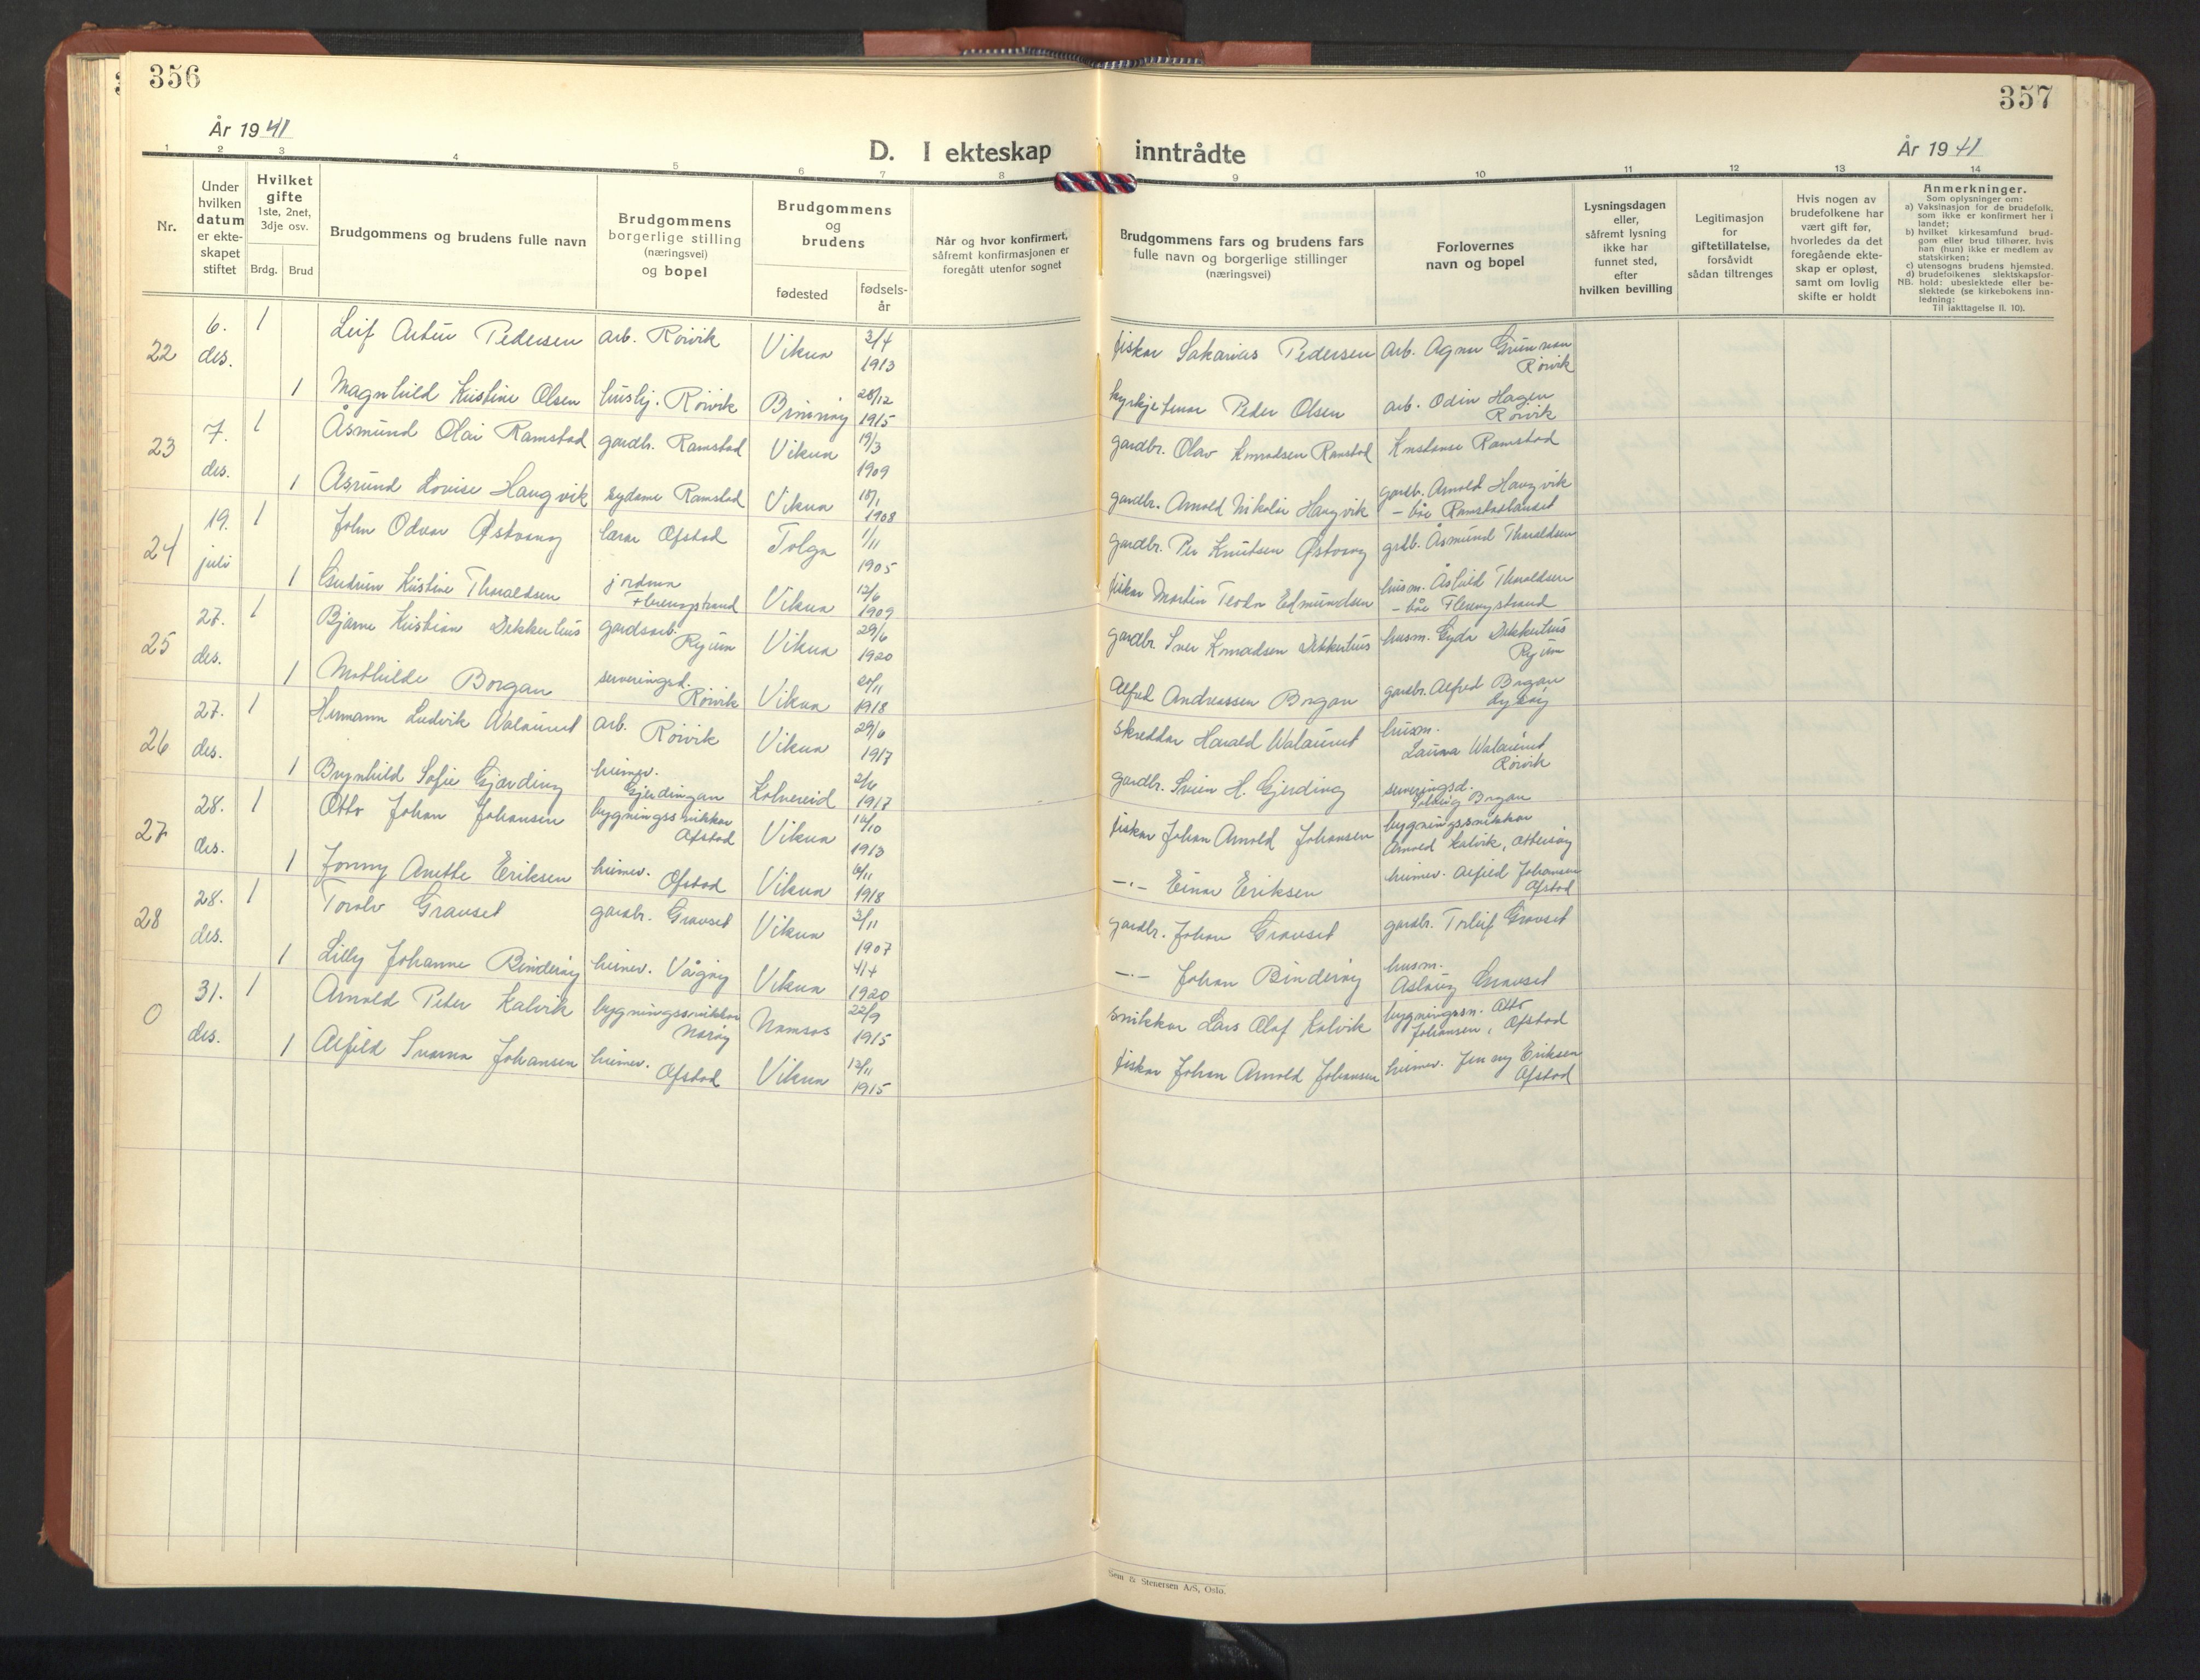 356
År 1941
D. I ekteskap
1 2 3 4 5 6 7 8
Nr.
Under hvilken datum er ekteskapet stiftet
Hvilket gifte 1ste, 2net, 3dje osv.
Brdg. Brud
Brudgommens og brudens fulle navn
Brudgommens borgerlige stilling (næringsvei) og bopel
Brudgommens og brudens
fødested
fødsels-år
Når og hvor konfirmert, såfremt konfirmasjonen er foregått utenfor sognet
22 6. des. 1 Leif Artur Pedersen arb. Rörvik Vikna 3/4 1913
1 Magnhild Kristine Olsen hushj. Rörvik Brönnöy 28/12 1915
23 7. des. 1 Åsmund Olai Ramstad gardbr. Ramstad Vikna 19/3 1909
1 Åsrund Lovise Haugvik sydame Ramstad Vikna 18/1 1908
24 19. juli 1 John Odvar Østvang lærar Ofstad Tolga 1/11 1905
1 Gudrun Kristine Thoraldsen jordmor Flerengstrand Vikna 12/6 1909
25 27. des. 1 Bjarne Kristian Dekkerhus gardsarb. Ryum Vikna 29/6 1920
1 Mathilde Borgan serveringsd. Rörvik Vikna 20/11 1918
26 27. des. 1 Hermann Ludvik Walaunet arb. Rörvik Vikna 29/6 1917
1 Brynhild Sofie Gjerding heimev. Gjerdingan Kolvereid 2/6 1917
27 28. des. 1 Otto Johan Johansen bygningssnikkar Ofstad Vikna 16/10 1913
1 Jenny Anette Eriksen heimev. Ofstad Vikna 6/11 1918
28 28. des. 1 Torolv Grauset gardbr. Grauset Vikna 3/11 1907
1 Lilly Johanne Binderöy heimev. Vågöy Vikna 4/4 1920
0 31. des. 1 Arnold Peter Kalvik bygningssnikkar Näröy Namsos 22/9 1915
1 Alfild Svanva Johansen heimev. Ofstad Vikna 12/11 1915
357
inntrådte
År 1941
9 10 11 12 13 14
Brudgommens fars og brudens fars fulle navn og borgerlige stillinger (næringsvei)
Forlovernes navn og bopel
Lysningsdagen eller, såfremt lysning ikke har funnet sted, efter hvilken bevilling
Legitimasjon for giftetillatelse, forsåvidt sådan tiltrenges
Hvis nogen av brudefolkene har vært gift før, hvorledes da det foregående ekteskap er opløst, samt om lovlig skifte er holdt
Anmerkninger.
Som oplysninger om:
a) Vaksinasjon for de brudefolk, som ikke er konfirmert her i landet;
b) hvilket kirkesamfund brudgom eller brud tilhører, hvis han (hun) ikke er medlem av statskirken;
c) utensogns brudens hjemsted.
d) brudefolkenes slektskapsforhold: ubeslektede eller beslektede (se kirkebokens innledning:
NB. Til iakttagelse II. 10).
fiskar Sakarias Pedersen arb. Agnar Grünman Rörvik
kyrkjetenar Peder Olsen arb. Odin Hagen Rörvik
gardbr. Olav Konradsen Ramstad Konstanse Ramstad
gardbr. Arnold Nikolai Haugvik gardb. Arnold Haugvik - båe Ramstadlandet
gardbr. Per Knutsen Østvang grdb. Åsmund Thoraldsen
fiskar Martin Teodor Edmundsen husm. Åshild Thoraldsen - båe Flerengstrand
gardbr. Iver Konradsen Dekkerhus husm. Gyda Dekkerhus Ryum
Alfred Andreassen Borgan gardbr. Alfred Borgan
skreddar Harald Walaunet husm. Laura Walaunet Rörvik
gardbr. Svein H. Gjerding serveringsd. Solveig Borgan
fiskar Johan Arnold Johansen bygningssnikkar Arnold Kalvik, Otteröy
—"— Einar Eriksen heimev. Alfild Johansen Ofstad
gardbr. Johan Grauset gardbr. Torleif Grauset
—"— Johan Binderöy husm. Aslaug Grauset
snikkar Lars Olaf Kalvik bygningssn. Otto Johansen, Ofstad
fiskar Johan Arnold Johansen heimev. Jenny Eriksen Ofstad
Sem & Stenersen A/S, Oslo.